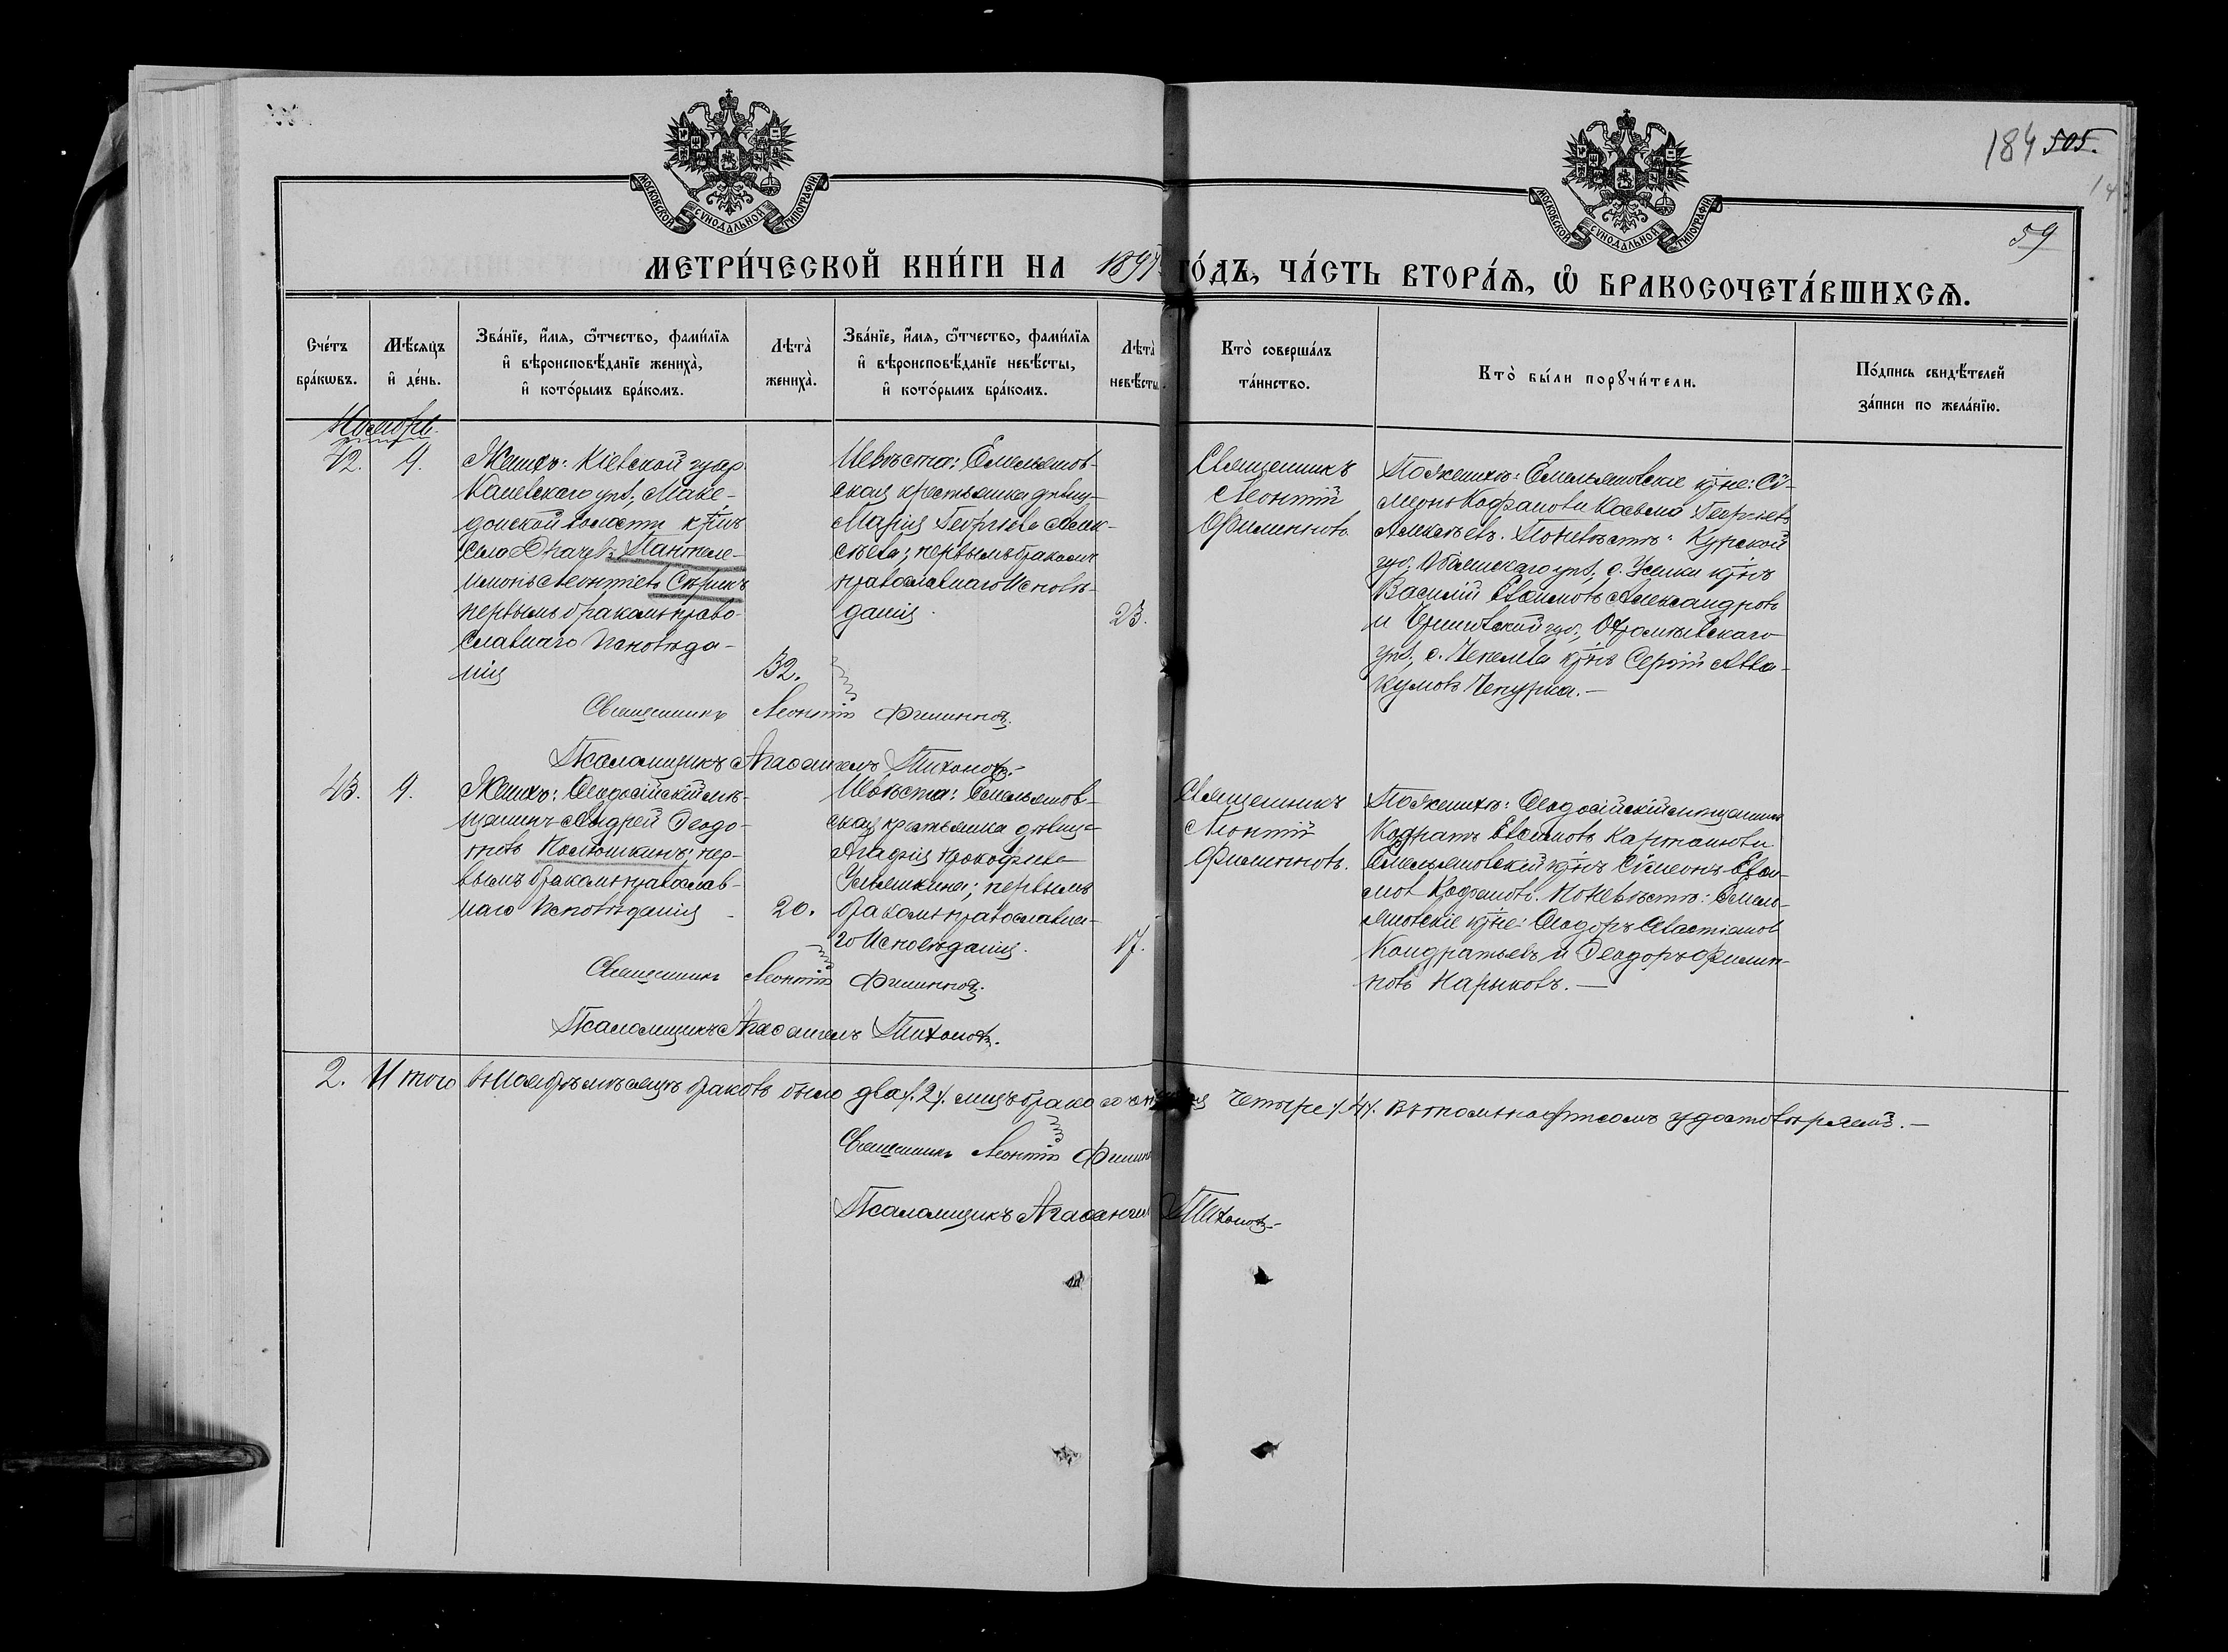 184 505.
14
59
МОСКОВСКОЙ СѴНОДАЛЬНОЙ ТИПОГРАФІИ
МОСКОВСКОЙ СѴНОДАЛЬНОЙ ТИПОГРАФІИ
МЕТРИ́ЧЕСКОЙ КНИ́ГИ НА 1897 ГО́ДЪ, ЧА́СТЬ ВТОРА́Ѧ, Ѽ БРАКОСОЧЕТА́ВШИХСѦ.
Сче́тъ
бра́кѡвъ.
Мѣ́сяцъ
и҆ де́нь.
Зва́нїе, и҆́мя, ѻ҆́тчество, фами́лїя
и҆ вѣроисповѣ́данїе жениха̀,
и҆ кото́рымъ бра́комъ.
Лѣта̀
жениха̀.
Зва́нїе, и҆́мя, ѻ҆́тчество, фами́лїя
и҆ вѣроисповѣ́данїе невѣ́сты,
и҆ кото́рымъ бра́комъ.
Лѣта̀
невѣ́сты
Кто̀ соверша́лъ
та́инство.
Кто̀ бы́ли порꙋчи́тели.
По́дпись свидѣ́телей
за́писи по жела́нїю.
Ноябрь
42.
9.
Женихъ: Кіевской губер.
Каневскаго уѣз., Маке-
донской волости крнъ
села Пантеле-
имонъ Леонтіевъ Скрикъ
первымъ бракомъ право-
славнаго исповѣда-
нія
32.
Невѣста: Емельянов-
ская крестьянка дѣвиц-
Марія Георгіева Алек-
сѣева; первымъ бракомъ
православнаго исповѣ-
данія.
23.
Священникъ
Леонтій
Филипповъ.
По женихѣ: Емельяновскіе кр̃не: Сѵ-
меонъ Кофановъ и Косьма Георгіевъ
Алексѣевъ. По невѣстѣ: Курской
губ., Обоянскаго уѣз., с. крнъ
Василій Евѳимовъ Александровъ
и Черниговской губ.,
уѣз., с. крнъ Сергій Авва-
кумовъ Чепурка.—
Священникъ Леонтій Филипповъ.
Псаломщикъ Агаѳангелъ Тихоновъ.
43.
9.
Женихъ: Ѳеодосійскій мѣ-
щанинъ Андрей Ѳеодо-
тіевъ Колюшкинъ; пер-
вымъ бракомъ православ-
наго исповѣданія
20.
Невѣста: Емельянов-
ская крестьянка дѣвица
Агафія Прокофіева
первымъ
бракомъ православна-
го исповѣданія.
17.
Священникъ
Леонтій
Филипповъ.
По женихѣ: Ѳеодосійскій мѣщанинъ
Кодратъ Евѳимовъ Картановъ и
Емельяновскій крнъ Сѵмеонъ Евѳи-
мов Кофановъ. По невѣстѣ: Емель-
яновскіе кр̃не: Ѳеодоръ Савастіанов
Кондратьевъ и Ѳеодоръ Филип-
повъ Нарыковъ.—
Священникъ Леонтій Филипповъ.
Псаломщикъ Агаѳангелъ Тихоновъ.
2. Итого въ ноябрѣ мѣсяцѣ браковъ было два /.2/. лицъ четыре /.4/. въ томъ удостовѣряемъ.—
Священникъ Леонтій Филипп
Псаломщикъ Агаѳангелъ Тихоновъ.